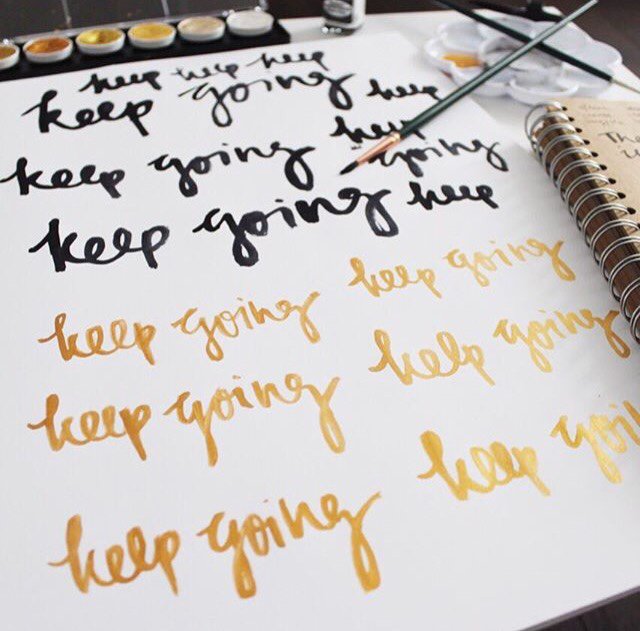 keep keep keep
keep going keep
keep
keep going going
keep going keep
keep going keep going
keep going keep going
keep going keep going